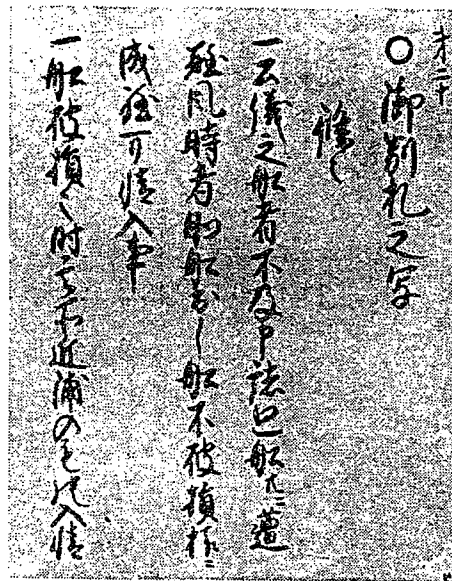 才二十
○御制札之写
條々
一公儀之船者不及申諸廻船共ニ遭
難風時者助船出し船不破損様ニ
成程可情入事
一船破損之時者其所近浦のもの入情